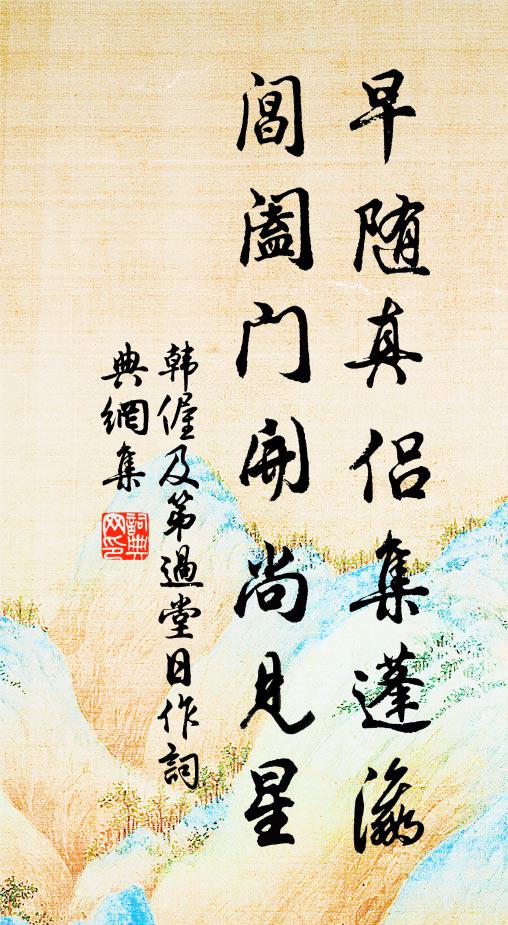 早随真侣集蓬瀛
阊阖门开尚见星
韩偓及第過堂日作詞
典網集
詞典
网印